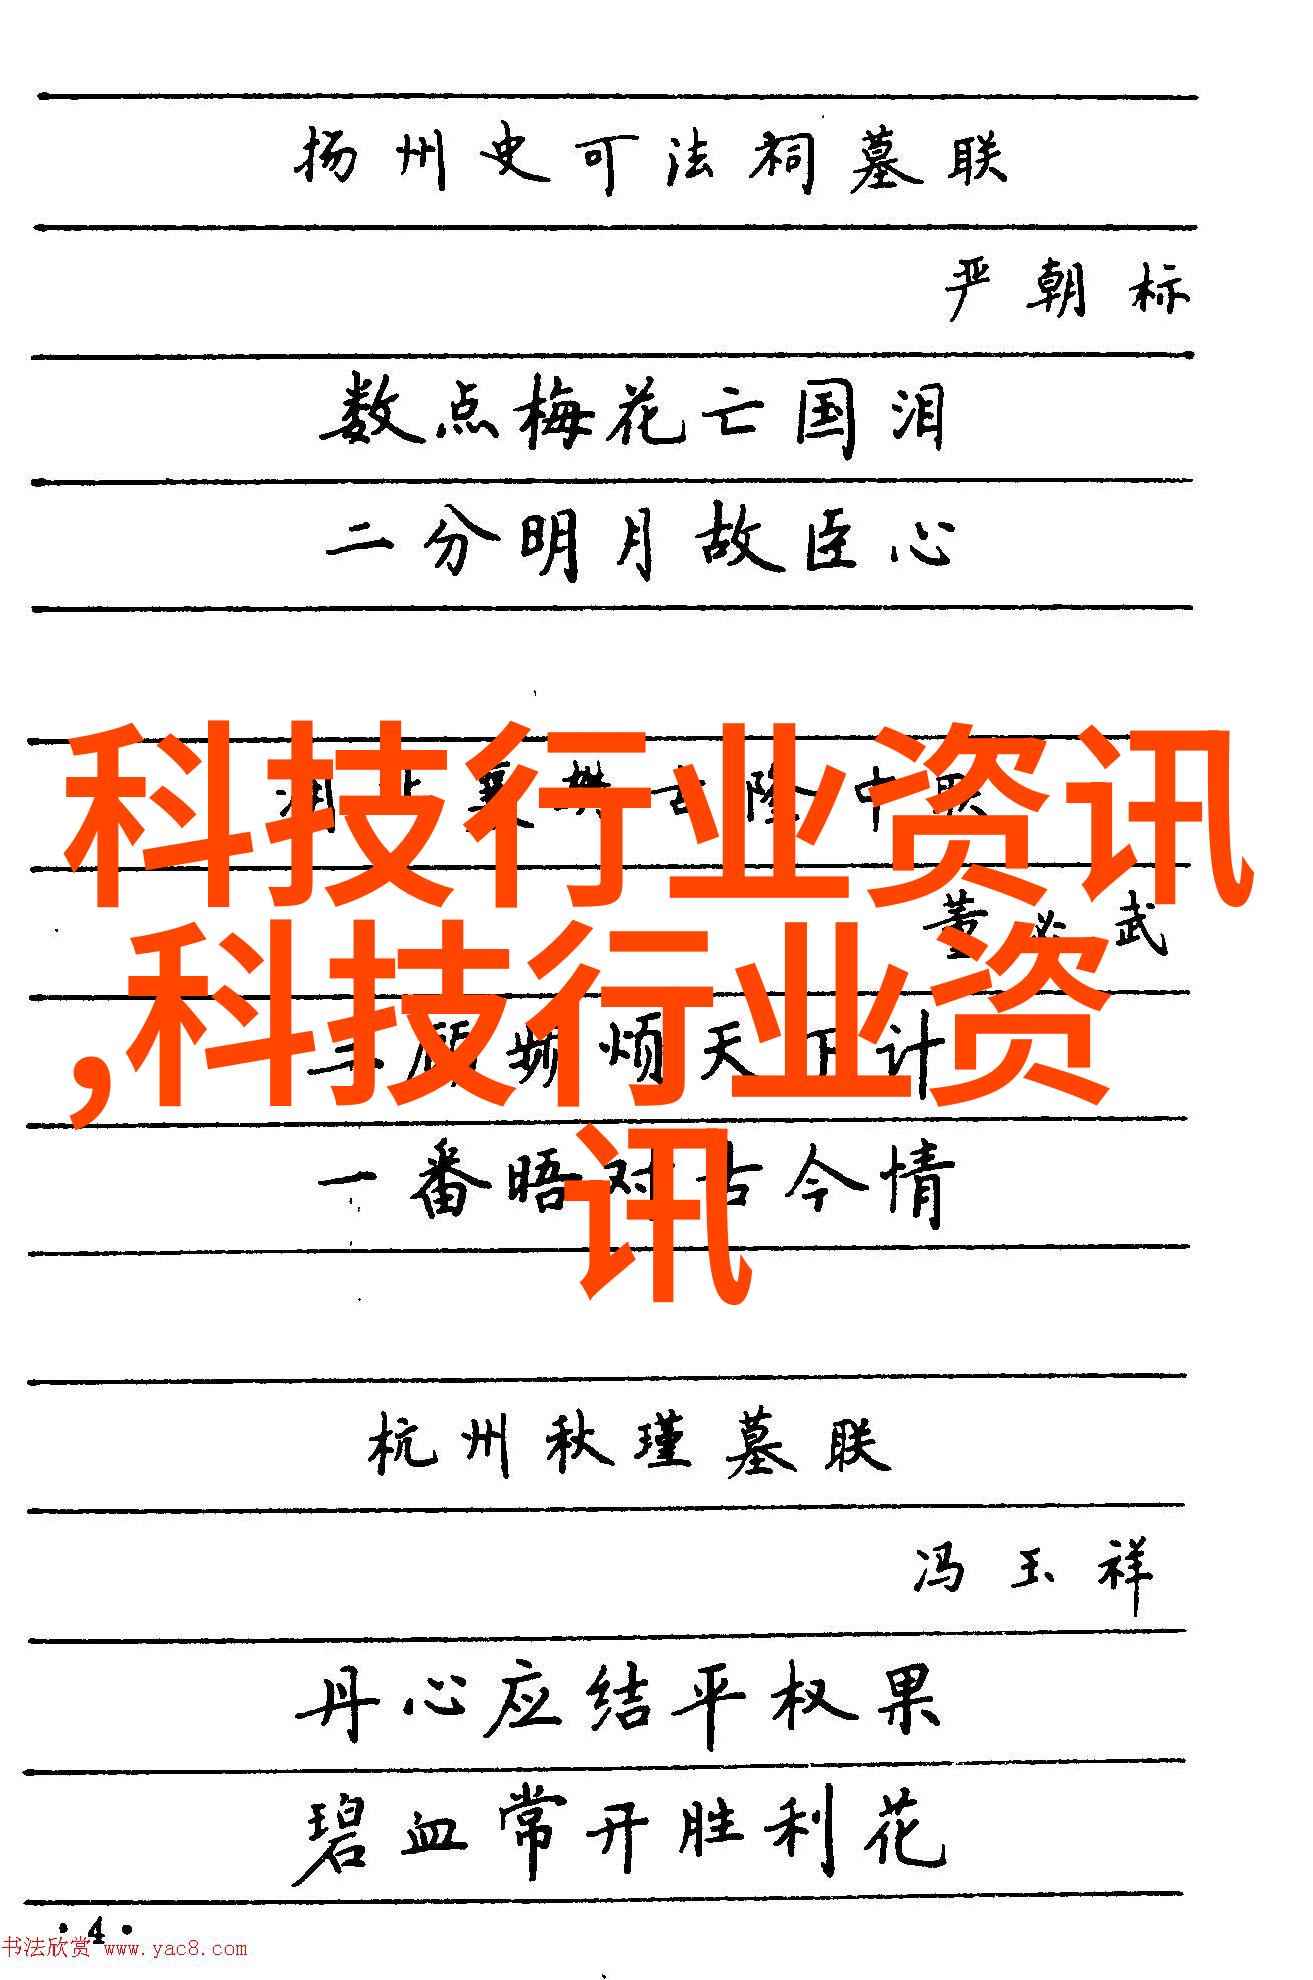 扬州史可法祠墓联
严朝标
数点梅花亡国泪
二分明月故臣心
科技行业资讯
襄樊古隆中联
董必武
,科技行业资
三顾频烦天下计
讯
一番晤对古今情
杭州秋瑾墓联
冯玉祥
丹心应结平权果
碧血常开胜利花
·4·
书法欣赏 www.yac8.com